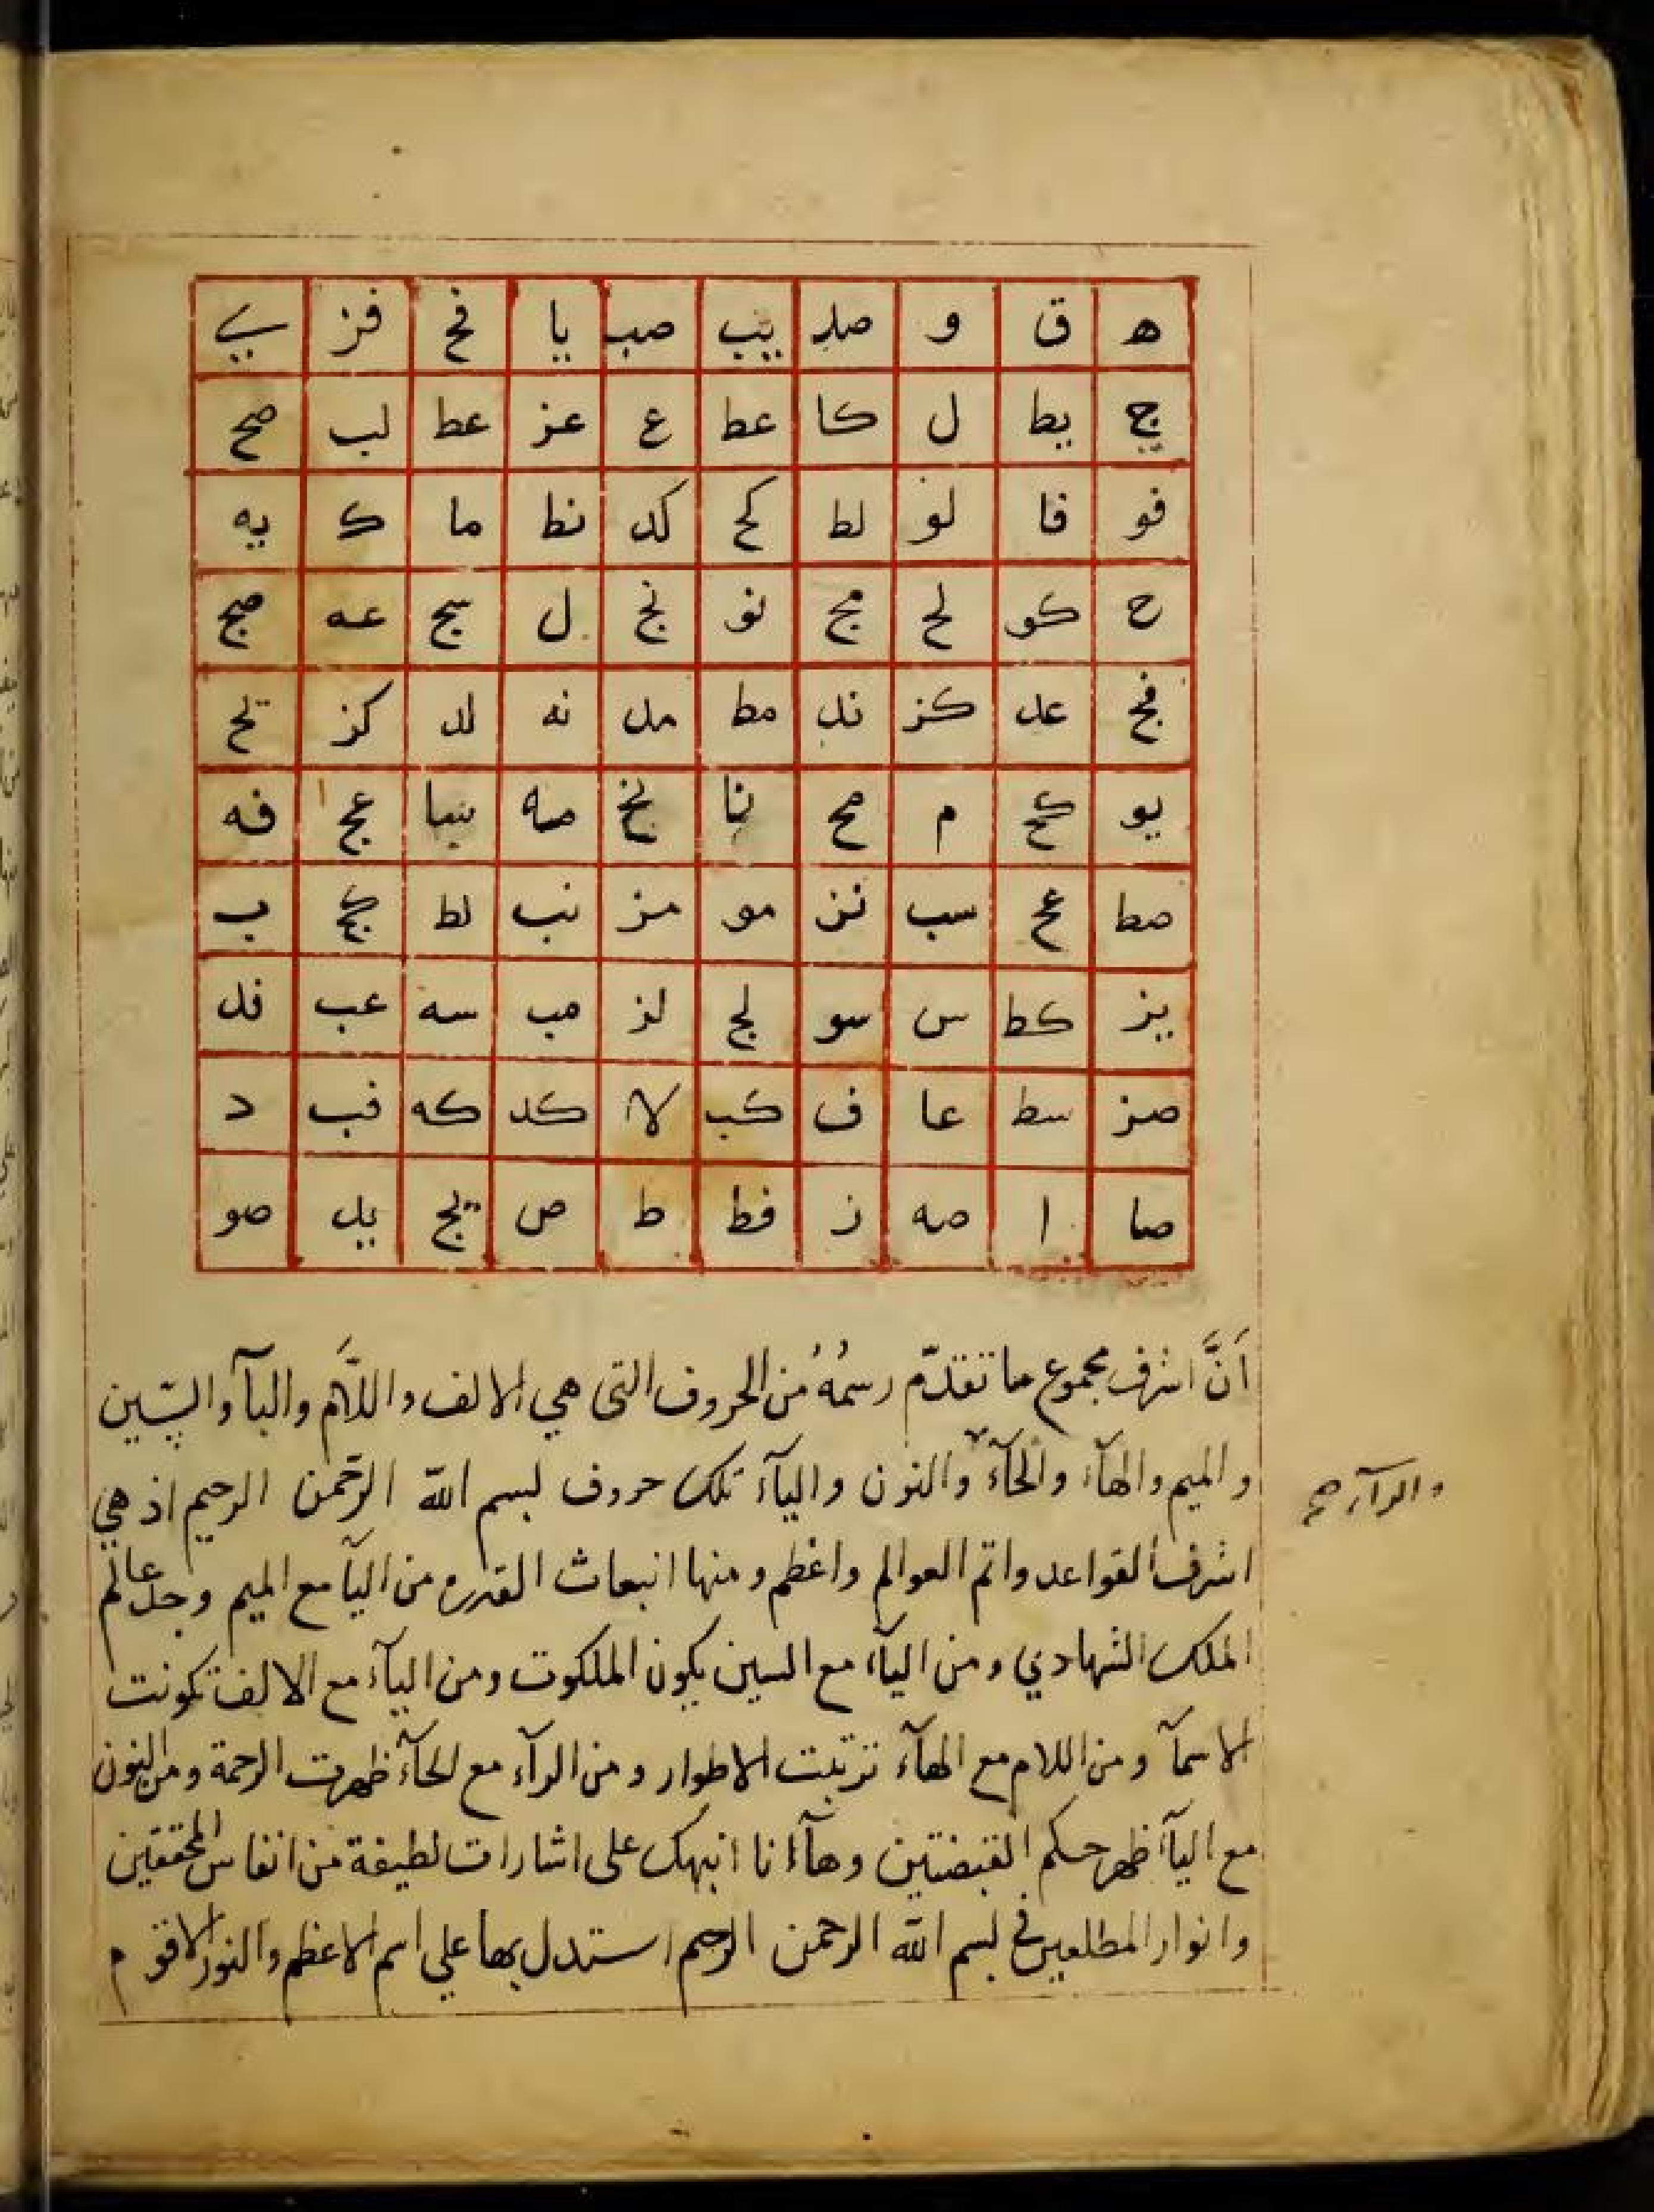 ه ق و صد يب صب يا فح فز ي
يح يط ل كا عط ع عز عط لب صح
فو فا لو لط كح كد نط ما ك يه
ح كو لح مح نو نج ل سج عه صج
فج عد كز ند مط مد نه لد كز لح
يو كح م مح نا نح مه سا عج فه
صط عح سب نز مو مز نب لط كج ب
يز كط س سو لج لز مب سه عب فد
صز سط عا ف كب لا كد كه فب د
صا ا صه ز فط ط ص يج يد صو
اَنَّ اشرف مجموع ما تقدّم رسمُهُ من الحروف التى هي الالف واللاَّم والبآ والسّين
والميم والهآء والحآء والنون واليآء تلك حروف لبسم اللّه الرحّمن الرحيم اذ هي
والرآء صح
اشرف القواعد واتم العوالم واعظم ومنها انبعاث القدره من اليآ مع الميم وجد عالم
الملك الشهادي ومن اليآء مع السين يكون الملكوت ومن اليآء مع الالف تكونت
الاسمآ ومن اللام مع الهآء ترتبت الاطوار ومن الرآء مع الحآء ظهرت الرحمة ومن النون
مع اليآء ظهر حكم القبضتين وهآءنا انبهك على اشارات لطيفة من انفاس المحققين
وانوار المطلعين في لبسم اللّه الرحمن الرحيم استدل بها علي اسم الاعظم والنور الاقوم